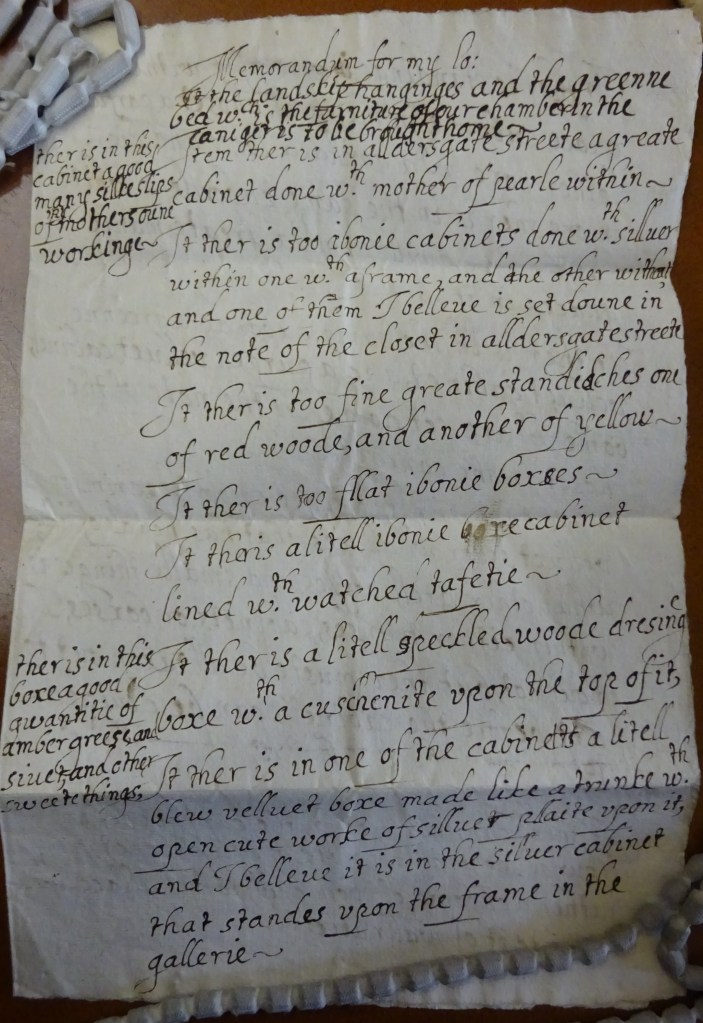 Memorandum for my lo:
It the landskip hanginges and the greenne
bed w.ch is the furniture of our chamber in the
is to be brought home
Item ther is in alldersgate streete a greate
cabinet done w.th mother of pearle within~
there is in this
cabinet a good
many silke slips
of my mothers oune
workinge~
It ther is too ibonie cabinets done w.th silluer
within one w.th a frame, and the other without
and one of them I belleue is set doune in
the note of the closet in alldersgate streete
It ther is too fine greate standidches one
of red woode, and another of yellow~
It ther is too fllat ibonie boxses~
It theris a litell ibonie boxe cabinet
lined w.th watched tafetie~
It ther is a litell speckled woode dresing
boxe w.th a cuschenite vpon the top of it,
ther is in this
boxe a good
qwantitie of
amber greese, and
siuet, and other
sweete things,
It ther is in one of the cabinetts a litell
blew velluet boxe made like a trunke w.th
open cute worke of silluer plaite vpon it,
and I belleue it is in the silluer cabinet
that standes vpon the frame in the
gallerie~